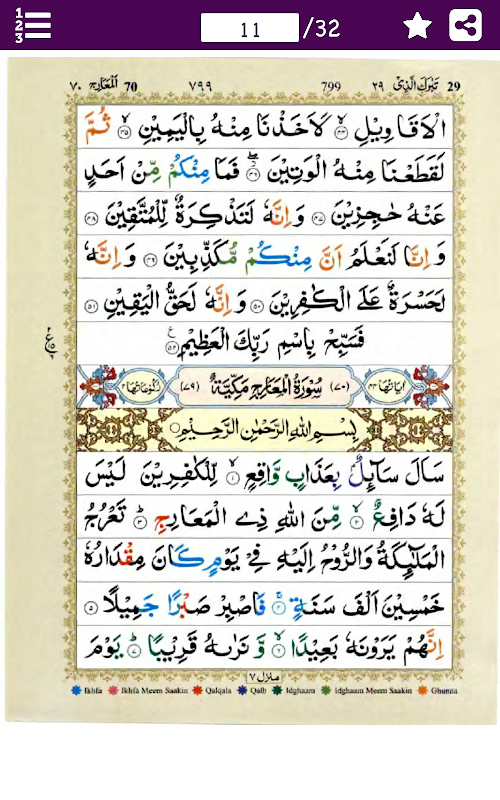 1 2 3
11 /32
٧٠ المعارج 70 ٧٩٩ 799 تبٰرك الذی ٢٩ 29
الْاَقَاوِيْلِ ۙ﴿٤٤﴾ لَاَخَذْنَا مِنْهُ بِالْيَمِيْنِ ۙ﴿٤٥﴾ ثُمَّ
لَقَطَعْنَا مِنْهُ الْوَتِيْنَ ۖ﴿٤٦﴾ فَمَا مِنْكُمْ مِّنْ اَحَدٍ
عَنْهُ حٰجِزِيْنَ ﴿٤٧﴾ وَاِنَّهٗ لَتَذْكِرَةٌ لِّلْمُتَّقِيْنَ ﴿٤٨﴾
وَاِنَّا لَنَعْلَمُ اَنَّ مِنْكُمْ مُّكَذِّبِيْنَ ﴿٤٩﴾ وَاِنَّهٗ
لَحَسْرَةٌ عَلَى الْكٰفِرِيْنَ ﴿٥٠﴾ وَاِنَّهٗ لَحَقُّ الْيَقِيْنِ ﴿٥١﴾
فَسَبِّحْ بِاسْمِ رَبِّكَ الْعَظِيْمِ ﴿٥٢﴾
اٰيَاتُهَا ٤٤ (٧٠) سُوْرَةُ الْمَعَارِجِ مَكِّيَّةٌ (٧٩) رُكُوْعَاتُهَا ٢
بِسْمِ اللّٰهِ الرَّحْمٰنِ الرَّحِيْمِ
سَاَلَ سَآئِلٌۢ بِعَذَابٍ وَّاقِعٍ ۙ﴿١﴾ لِّلْكٰفِرِيْنَ لَيْسَ
لَهٗ دَافِعٌ ۙ﴿٢﴾ مِّنَ اللّٰهِ ذِی الْمَعَارِجِ ؕ﴿٣﴾ تَعْرُجُ
الْمَلٰٓئِكَةُ وَالرُّوْحُ اِلَيْهِ فِیْ يَوْمٍ كَانَ مِقْدَارُهٗ
خَمْسِيْنَ اَلْفَ سَنَةٍ ۚ﴿٤﴾ فَاصْبِرْ صَبْرًا جَمِيْلًا ﴿٥﴾
اِنَّهُمْ يَرَوْنَهٗ بَعِيْدًا ۙ﴿٦﴾ وَّنَرٰىهُ قَرِيْبًا ؕ﴿٧﴾ يَوْمَ
منزل ٧
Ikhfa Ikhfa Meem Saakin Qalqala Qalb Idghaam Idghaam Meem Saakin Ghunna